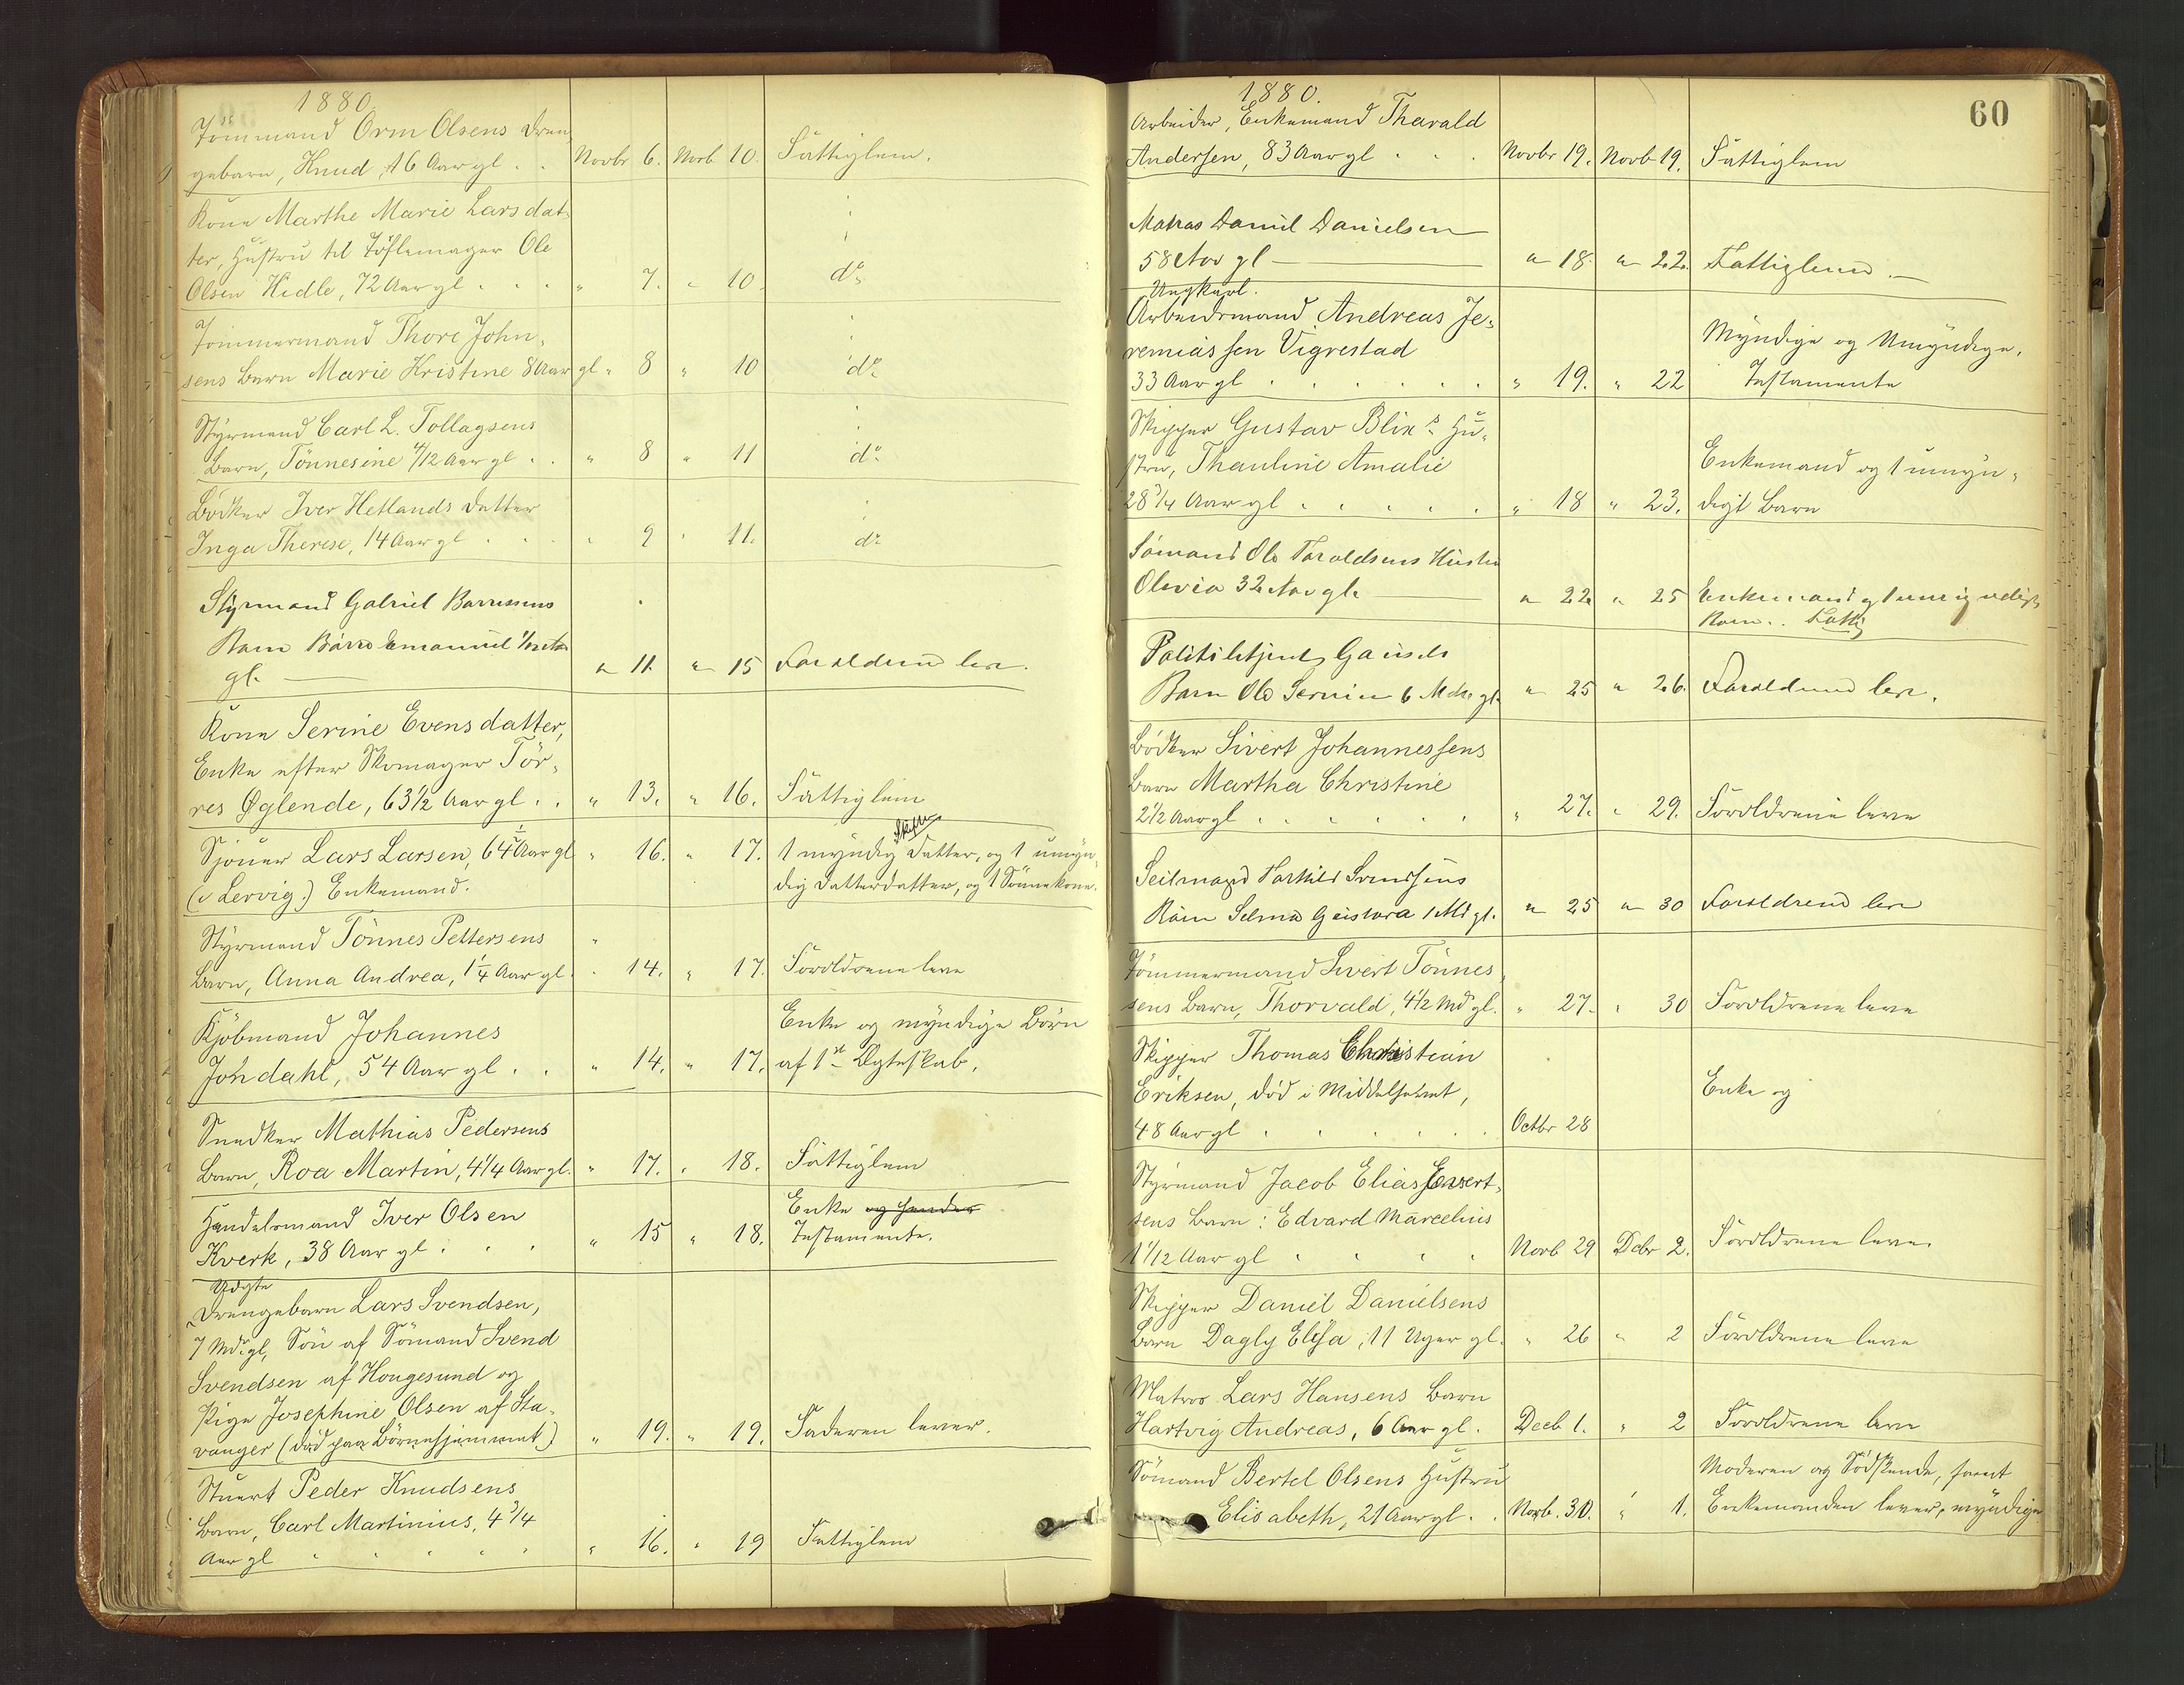 1880
Tömmand Orm Olsens Dren
gebarn, Knud, 16 Aar gl . . Novbr 6. Novb 10. Fattiglem.
Kone Marthe Marie Larsdat-
ter, Hustru til Töflemager Ole
Olsen Hidle, 72 Aar gl . . . " 7. " 10. do.
Tömmermand Thore John-
sens Barn Marie Kristine 8 Aar gl. " 8 " 10 do.
Styrmand Carl L. Tollagsens
Barn, Tönnesine 4/12 Aar gl . . " 8 " 11 do.
Bödker Iver Hetlands Datter
Inga Therese, 14 Aar gl . . . " 9 " 11. do.
Styrmand Gabriel Barresens
Barn Bárre Emanuel
gl. — " 11. " 15 Foreldrene leve.
Kone Serine Evensdatter,
Enke efter Skomager Tör-
res Øglende, 63 1/2 Aar gl . . " 13. " 16. Fattiglem
Skifte
Sjöuer Lars Larsen, 64 1/2 Aar gl " 16. " 17. 1 myndig Datter, og 1 umyn-
(i Lervig.) Enkemand. dig Datterdatter, og 1 Sönnekone.
Styrmand Tönnes Pettersens
Barn, Anna Andrea, 1 1/4 Aar gl. " 14. " 17. Forældrene leve
Kjöbmand Johannes Enke og myndige Börn
Jondahl, 54 Aar gl . . " 14. " 17. af 1st Ægteskab.
Snedker Mathias Pedersens
Barn, Roa Martin, 4 1/4 Aar gl. " 17. " 18. Fattiglem
Handelsmand Iver Olsen Enke og
Kverk, 38 Aar gl . . . " 15 " 18. Testamente.
Uægte
Drengebarn Lars Svendsen,
7 Md. gl, Sön af Sömand Svend
Svendsen af Hougesund og
Pige Josephine Olsen af Sta-
vanger (död paa Börnehjemmet.) " 19. " 19. Faderen lever.
Stuert Peder Knudsens
Barn, Carl Martinius, 4 3/4
Aar gl " " " " " 16. " 19 Fattiglem
1880. 60
Arbeider, Enkemand Tharald
Andersen, 83 Aar gl . . . Novbr 19. Novb 19. Fattiglem
Matros Daniel Danielsen
58 Aar gl — " 18. " 22. Fattiglem. —
Ungkarl.
Arbeidsmand Andreas Je-
remiassen Vigrestad Myndige og Umyndige.
33 Aar gl . . . . . . " 19. " 22 Testamente
Skipper Gustav Blix's Hu-
stru, Thauline Amalie Enkemand og 1 umyn-
28 3/4 Aar gl . . . . . " 18 " 23. digt Barn
Sömand Ole Taraldsens Hustru
Olevia 32 Aar gl. — " 22 " 25 Enkemand og 1 umyndigt
Barn. Fattig
Politibetjent Gausels
Barn Ole Servin 6 Mdr gl. " 25 " 26. Foreldrene leve.
Bödker Sivert Johannessens
Barn Martha Christine
2 1/2 Aar gl . . . . . . " 27. " 29. Forældrene leve
Seilmager Torkild Svendsens
Barn Selma Gustava 1 Md gl. " 25 " 30 Foreldrene leve
Tömmermand Sivert Tönnes-
sens Barn, Thorvald, 4 1/2 Md gl. " 27. " 30 Forældrene leve
Skipper Thomas Christian
Eriksen, död i Middelhavet, Enke og
48 Aar gl . . . . . . Octbr 28
Styrmand Jacob Elias Evert-
sens Barn: Edvard Marcelius
1 1/12 Aar gl " " " " Novb 29 Dcbr 2. Forældrene leve.
Skipper Daniel Danielsens
Barn Dagly Elisa, 11 Uger gl. " 26 " 2 Forældrene leve
Matros Lars Hansens Barn
Hartvig Andreas, 6 Aar gl. Decb 1. " 2 Forældrene leve
Sömand Bertel Olsens Hustru Moderen og Södskende, samt
Elisabeth, 21 Aar gl. . Novb. 30. " 1. Enkemanden lever, myndige